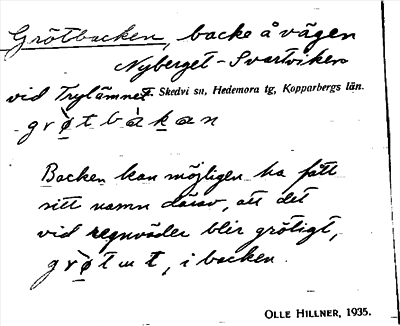 Grötbacken, backe å vägen
Nyberget - Svartviken
vid Trylämnet. Skedvi sn, Hedemora tg, Kopparbergs län.
grø̀tbàkan
Backen kan möjligen ha fått
sitt namn därav, att det
vid regnväder blir grötigt,
grø̀tut, i backen.
OLLE HILLNER, 1935.